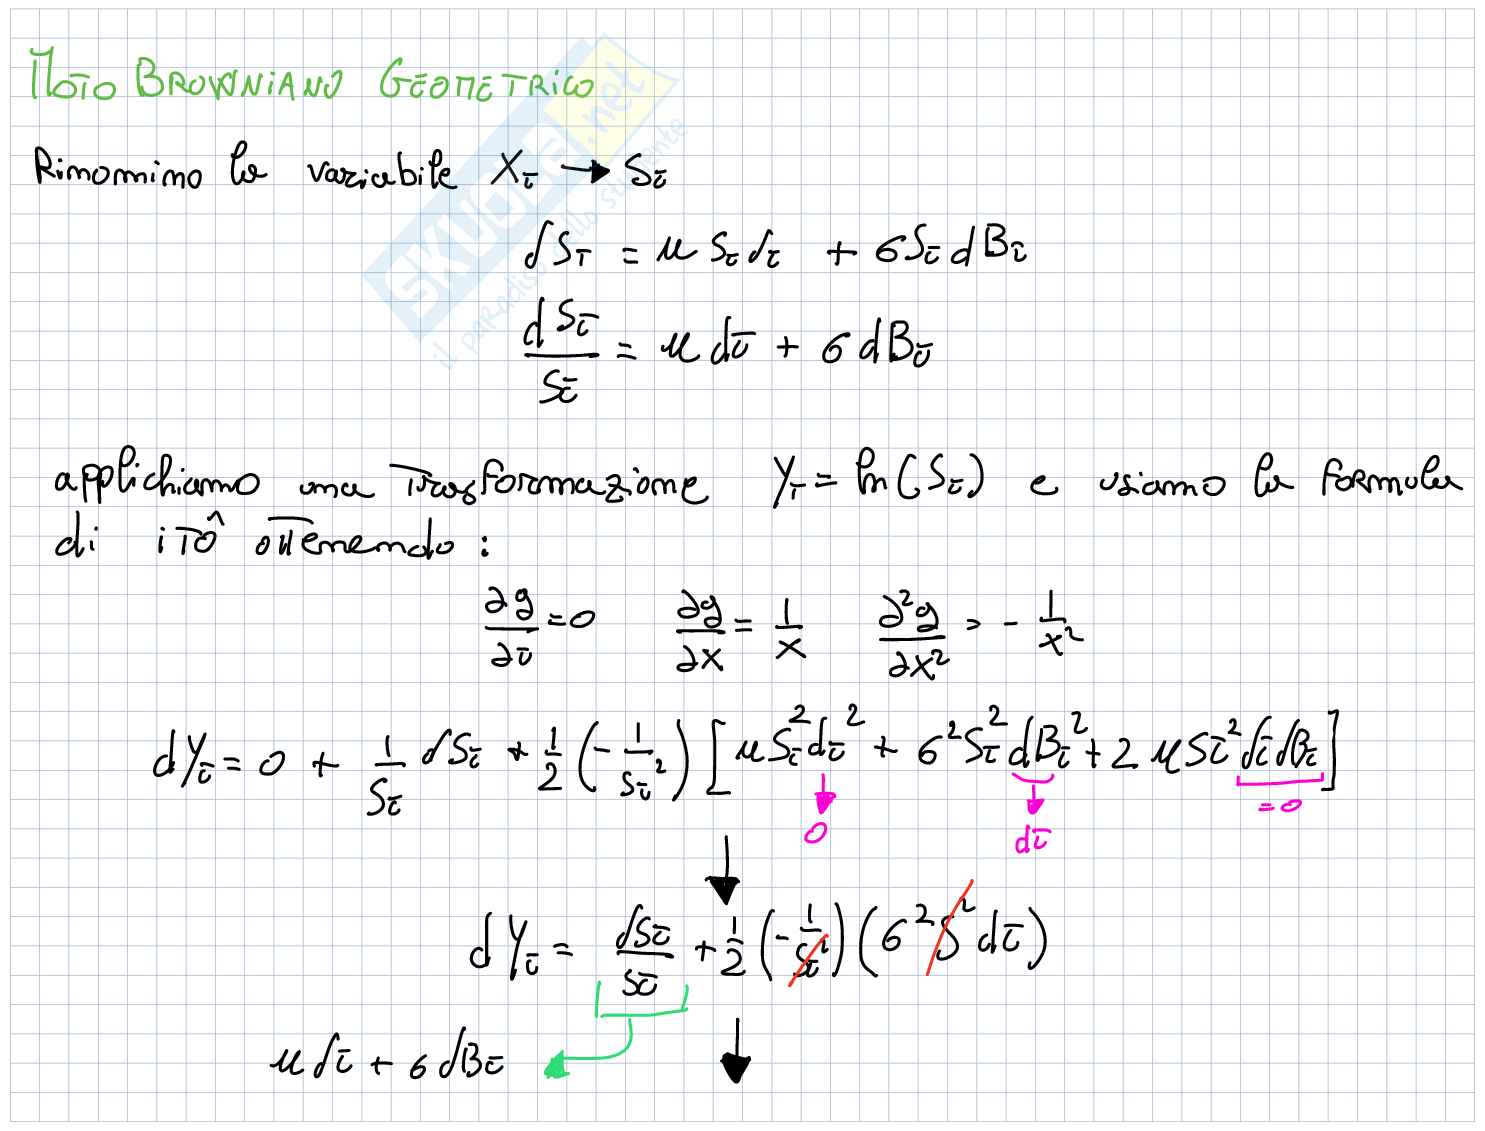 Moto Browniano Geometrico
Rinomino la variabile X_t → S_t
dS_t = μ S_t dt + σ S_t dB_t
dS_t / S_t = μ dt + σ dB_t
applichiamo una trasformazione Y_t = ln(S_t) e usiamo la formula
di itô ottenendo:
∂g/∂t = 0   ∂g/∂x = 1/x   ∂²g/∂x² = - 1/x²
dY_t = 0 + 1/S_t dS_t + 1/2 (- 1/S_t²) [μ S_t² dt² + σ² S_t² dB_t² + 2 μ S_t² dt dB_t]
0   dt   = 0
dY_t = dS_t/S_t + 1/2 (- 1/S_t²) (σ² S² dt)
μ dt + σ dB_t
SKUOLA.net
il paradiso dello studente